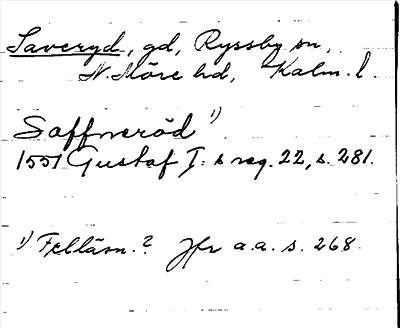 Saveryd, gd, Ryssby sn,
N. Möre hd, Kalm. l.
Saffweröd 1)
1551 Gustaf I:s reg. 22, s. 281.
1) Felläsn.? Jfr a.a. s. 268.